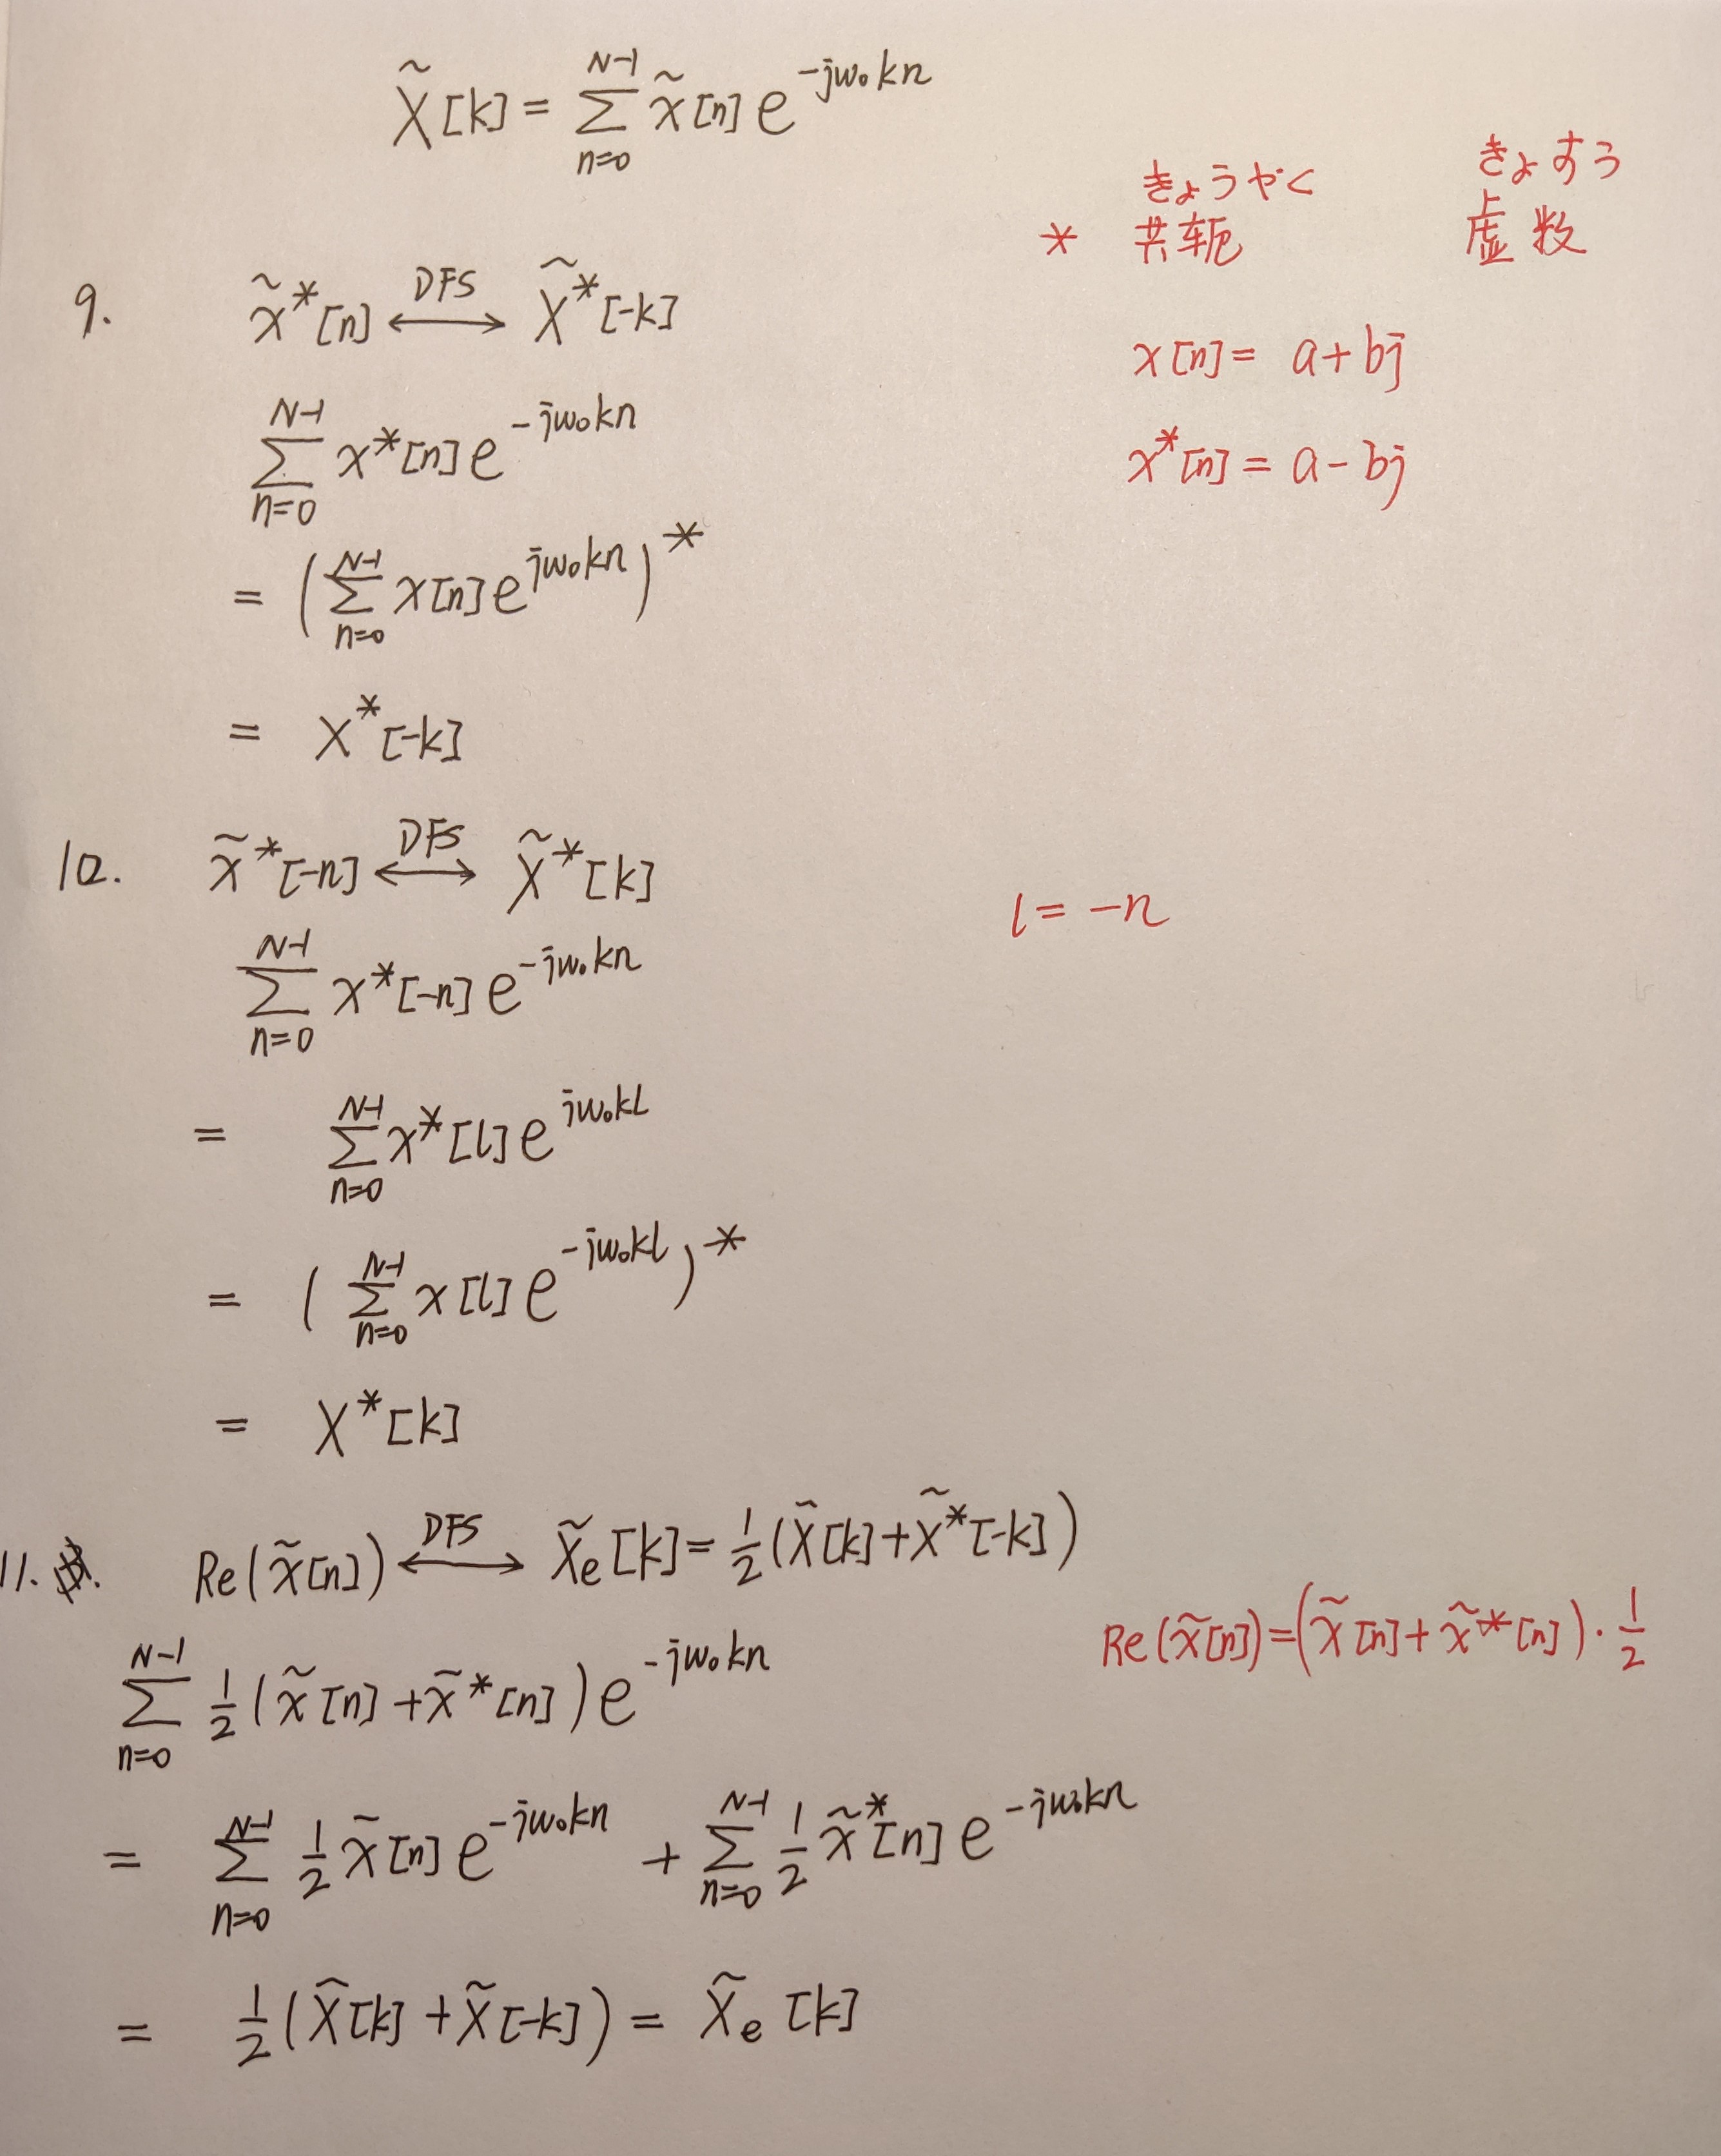 X̃[k] = Σ_{n=0}^{N-1} x̃[n] e^{-jω₀kn}
きょうやく きょすう
* 共轭 虚数
9. x̃*[n] ⟷^{DFS} X̃*[-k]
x[n] = a+bj
Σ_{n=0}^{N-1} x*[n] e^{-jω₀kn}
x*[n] = a-bj
= (Σ_{n=0}^{N-1} x[n] e^{jω₀kn})*
= X*[-k]
10. x̃*[-n] ⟷^{DFS} X̃*[k]
l = -n
Σ_{n=0}^{N-1} x*[-n] e^{-jω₀kn}
= Σ_{n=0}^{N-1} x*[l] e^{jω₀kl}
= (Σ_{n=0}^{N-1} x[l] e^{-jω₀kl})*
= X*[k]
11. Re(x̃[n]) ⟷^{DFS} X̃e[k] = 1/2 (X̃[k] + X̃*[-k])
Re(x̃[n]) = (x̃[n] + x̃*[n]) · 1/2
Σ_{n=0}^{N-1} 1/2 (x̃[n] + x̃*[n]) e^{-jω₀kn}
= Σ_{n=0}^{N-1} 1/2 x̃[n] e^{-jω₀kn} + Σ_{n=0}^{N-1} 1/2 x̃*[n] e^{-jω₀kn}
= 1/2 (X̃[k] + X̃[-k]) = X̃e[k]